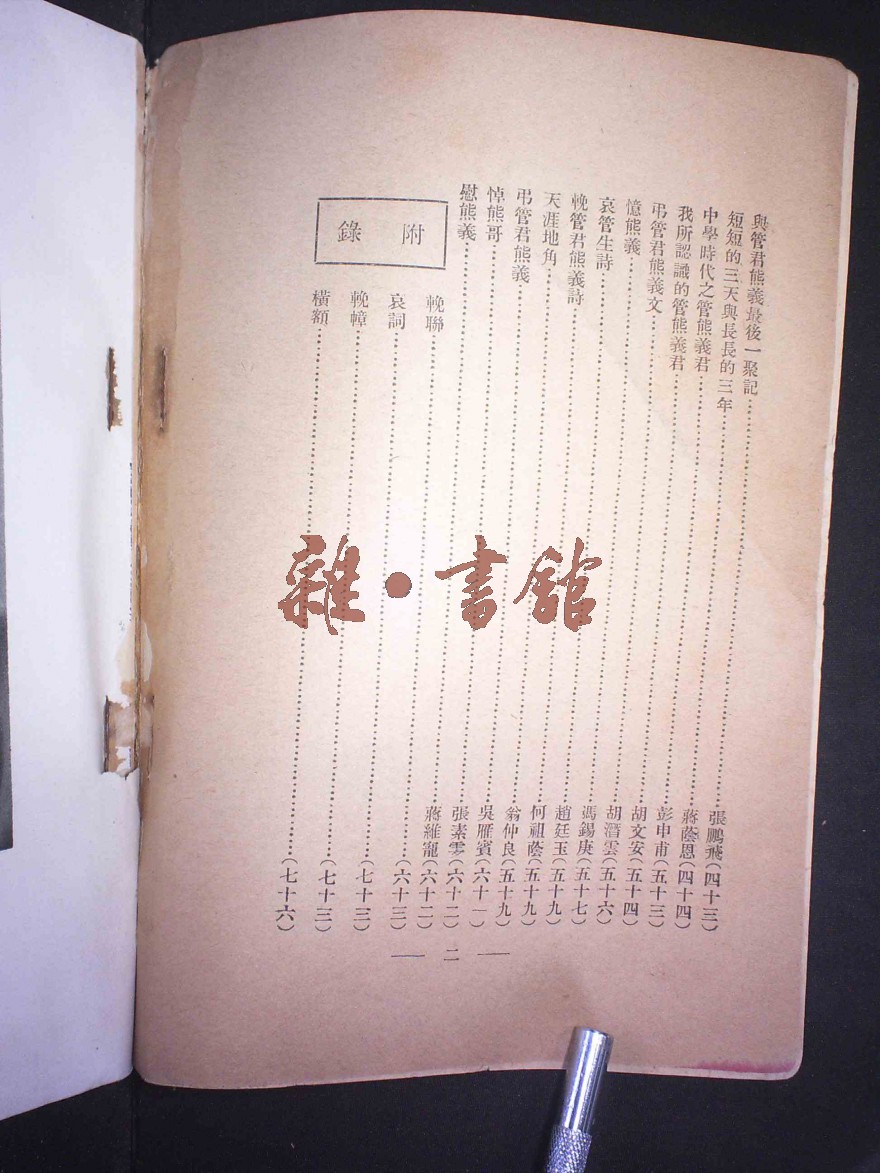 與管君熊義最後一聚記……張鵬飛(四十三)
短短的三天與長長的三年……蔣蔭恩(四十四)
中學時代之管熊義君……彭申甫(五十三)
我所認識的管熊義君……胡文安(五十四)
弔管君熊義文……胡潛雲(五十六)
憶熊義……馮錫庚(五十七)
哀管生詩……趙廷玉(五十九)
輓管君熊義詩……何祖蔭(五十九)
天涯地角……翁仲良(五十九)
弔管君熊義……吳雁賓(六十一)
悼熊哥……張素雯(六十二)
慰熊義……蔣維寵(六十二)
附錄
輓聯……(六十三)
哀詞……(七十三)
輓幛……(七十三)
橫額……(七十六)
— 二 —
雜•書館